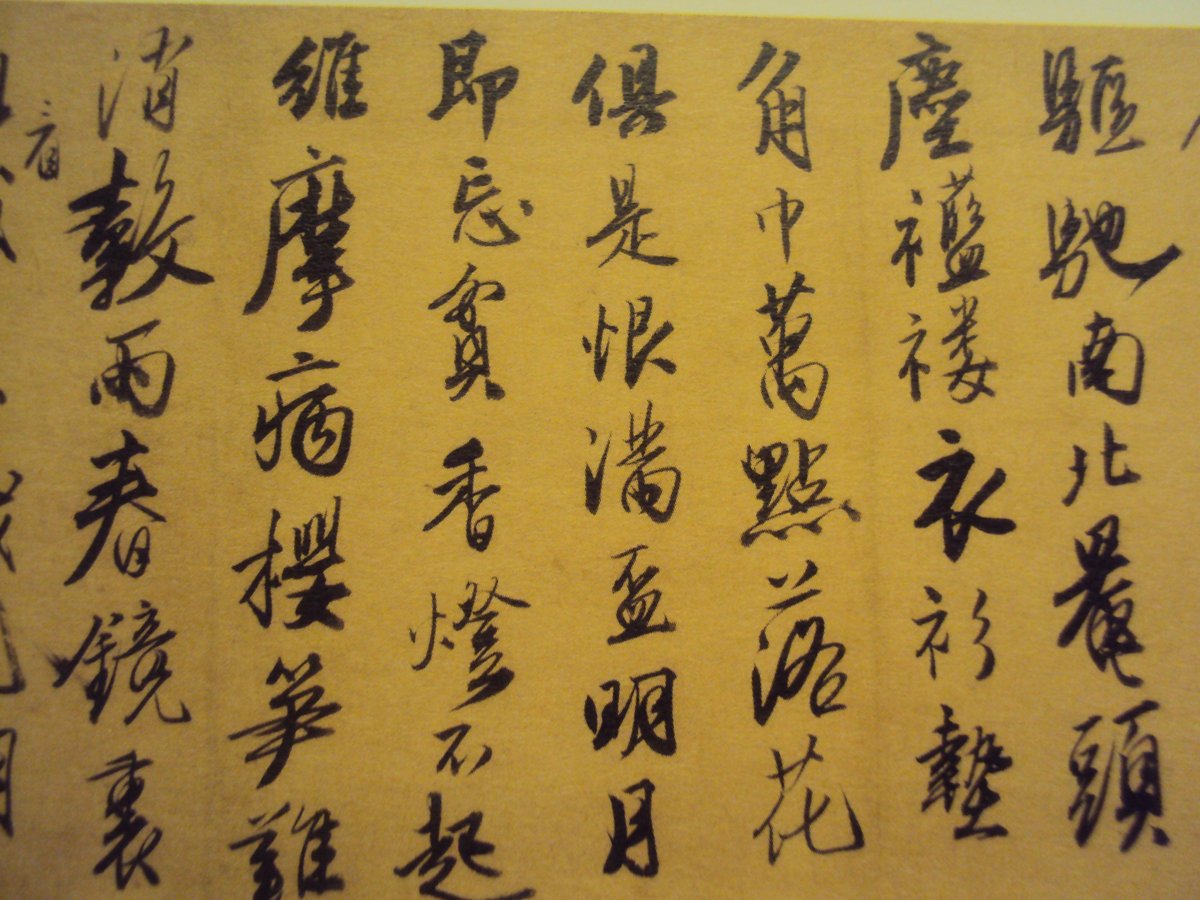 驅馳南北罨頭
塵襤褸衣衫墊
角巾萬點落花
俱是恨滿盃明月
即忘貧香燈不起
維摩病櫻笋難
消穀雨春鏡裏
看